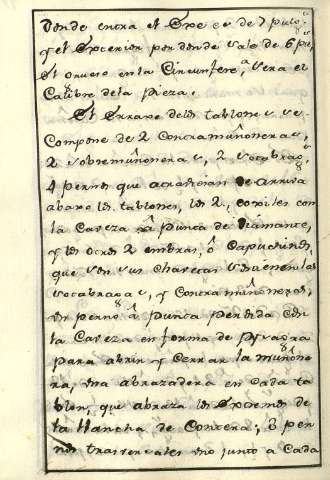 Donde entra el Exe es de 7 pulg.s
y el Exterior por donde sale de 6 pul,
El grueso en la Circunfere,a sera el
Calibre dela Pieza.
El Errage delos tablones se
Compone de 2 Contramuñoneras,
2 sobremuñoneras, 2 socabragas
4 pernos que atraviesan de arriva
abaxo los tablones, los 2, con
la Caveza â Punta de Diamante,
y los otros 2 embras, ô Capuchinos,
que con sus chavetas los
socabragas, y Contra muñoneras,
un perno â punta perdida con
la Caveza en forma de
para abrir y Cerrar la muñone
ra, una abrazadera en cada ta
blon, que abraza los Extremos de
la Plancha de Contera; 3 per
nos trasversales uno junto a Cada